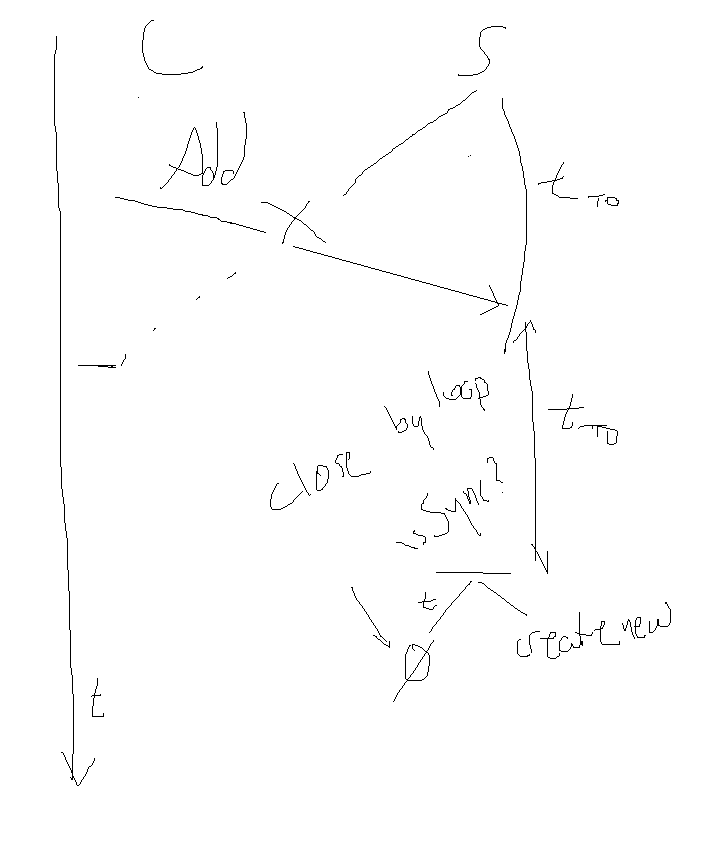 C S
Add
t TO
close by loop
t TO
Sync?
t
create new
Ø
t